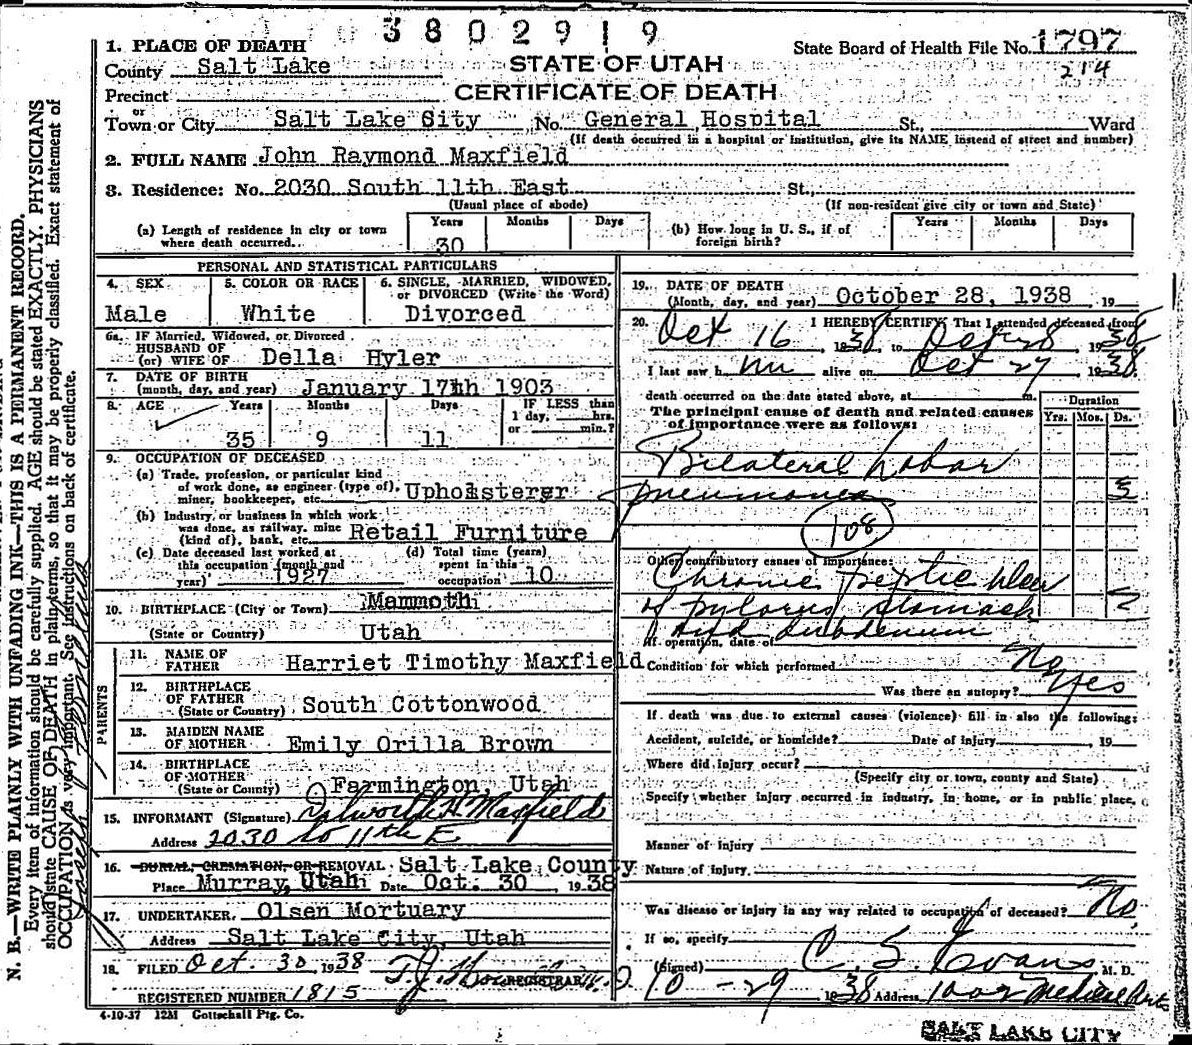 3802919
1. PLACE OF DEATH
State Board of Health File No. 1797
County Salt Lake
STATE OF UTAH
214
Precinct
CERTIFICATE OF DEATH
or
Town or City Salt Lake City No. General Hospital St., Ward
(If death occurred in a hospital or institution, give its NAME instead of street and number)
2. FULL NAME John Raymond Maxfield
3. Residence: No. 2030 South 11th East St.,
(Usual place of abode) (If non-resident give city or town and State)
(a) Length of residence in city or town where death occurred. Years 30 Months Days
(b) How long in U. S., if of foreign birth? Years Months Days
PERSONAL AND STATISTICAL PARTICULARS
4. SEX
Male
5. COLOR OR RACE
White
6. SINGLE, MARRIED, WIDOWED, or DIVORCED (Write the Word)
Divorced
6a. IF Married, Widowed, or Divorced
HUSBAND OF
(or) WIFE OF Della Hyler
7. DATE OF BIRTH
(month, day, and year) January 17th 1903
8. AGE Years Months Days IF LESS than
1 day, hrs.
or min.?
35 9 11
9. OCCUPATION OF DECEASED
(a) Trade, profession, or particular kind
of work done, as engineer (type of),
miner, bookkeeper, etc. Upholsterer
(b) Industry or business in which work
was done, as railway, mine
(kind of), bank, etc. Retail Furniture
(c) Date deceased last worked at
this occupation (month and
year) 1927
(d) Total time (years)
spent in this
occupation 10
10. BIRTHPLACE (City or Town) Mammoth
(State or Country) Utah
PARENTS
11. NAME OF
FATHER Harriet Timothy Maxfield
12. BIRTHPLACE
OF FATHER
(State or Country) South Cottonwood
13. MAIDEN NAME
OF MOTHER Emily Orilla Brown
14. BIRTHPLACE
OF MOTHER
(State or Country) Farmington, Utah
15. INFORMANT (Signature) Maxfield
Address 2030 So 11th E
16. BURIAL, CREMATION, OR REMOVAL Salt Lake County
Place Murray, Utah Date Oct. 30, 1938
17. UNDERTAKER, Olsen Mortuary
Address Salt Lake City, Utah
18. FILED Oct. 30, 1938
REGISTRAR
REGISTERED NUMBER 1815
4-10-37 12M Gottschall Ptg. Co.
19. DATE OF DEATH
(Month, day, and year) October 28, 1938 19
20. I HEREBY CERTIFY That I attended deceased from
Oct 16, 1938, to Oct 28, 1938
I last saw him alive on Oct 27, 1938
death occurred on the date stated above, at m.
The principal cause of death and related causes
of importance were as follows:
Duration
Yrs. Mos. Ds.
Bilateral Lobar
pneumonia
108
Other contributory causes of importance:
Chronic peptic ulcer
of pylorus stomach
and duodenum
If operation, date of
Condition for which performed No
Was there an autopsy? Yes
If death was due to external causes (violence) fill in also the following:
Accident, suicide, or homicide? Date of injury, 19
Where did injury occur?
(Specify city or town, county and State)
Specify whether injury occurred in industry, in home, or in public place,
Manner of injury
Nature of injury
Was disease or injury in any way related to occupation of deceased? No
If so, specify
(Signed) C. S. Evans M. D.
10-29 1938 Address 1002 Medical Arts
SALT LAKE CITY
N. B.—WRITE PLAINLY WITH UNFADING INK—THIS IS A PERMANENT RECORD.
Every item of information should be carefully supplied. AGE should be stated EXACTLY. PHYSICIANS
should state CAUSE OF DEATH in plain terms, so that it may be properly classified. Exact statement of
OCCUPATION is very important. See instructions on back of certificate.